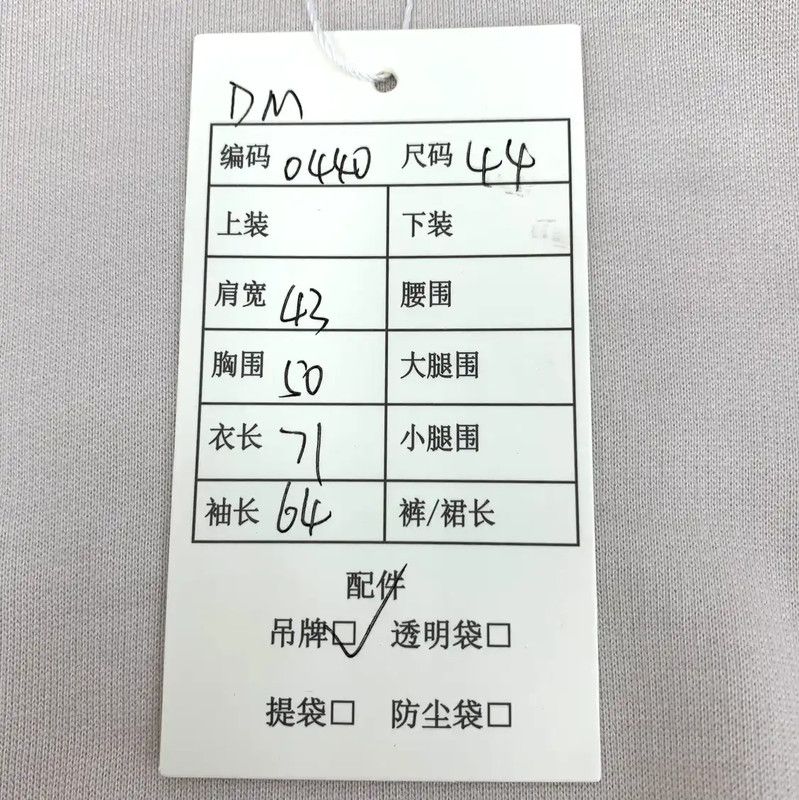 DM
编码 0440 尺码 44
上装 下装
肩宽 43 腰围
胸围 50 大腿围
衣长 71 小腿围
袖长 64 裤/裙长
配件
吊牌☑ 透明袋□
提袋□ 防尘袋□